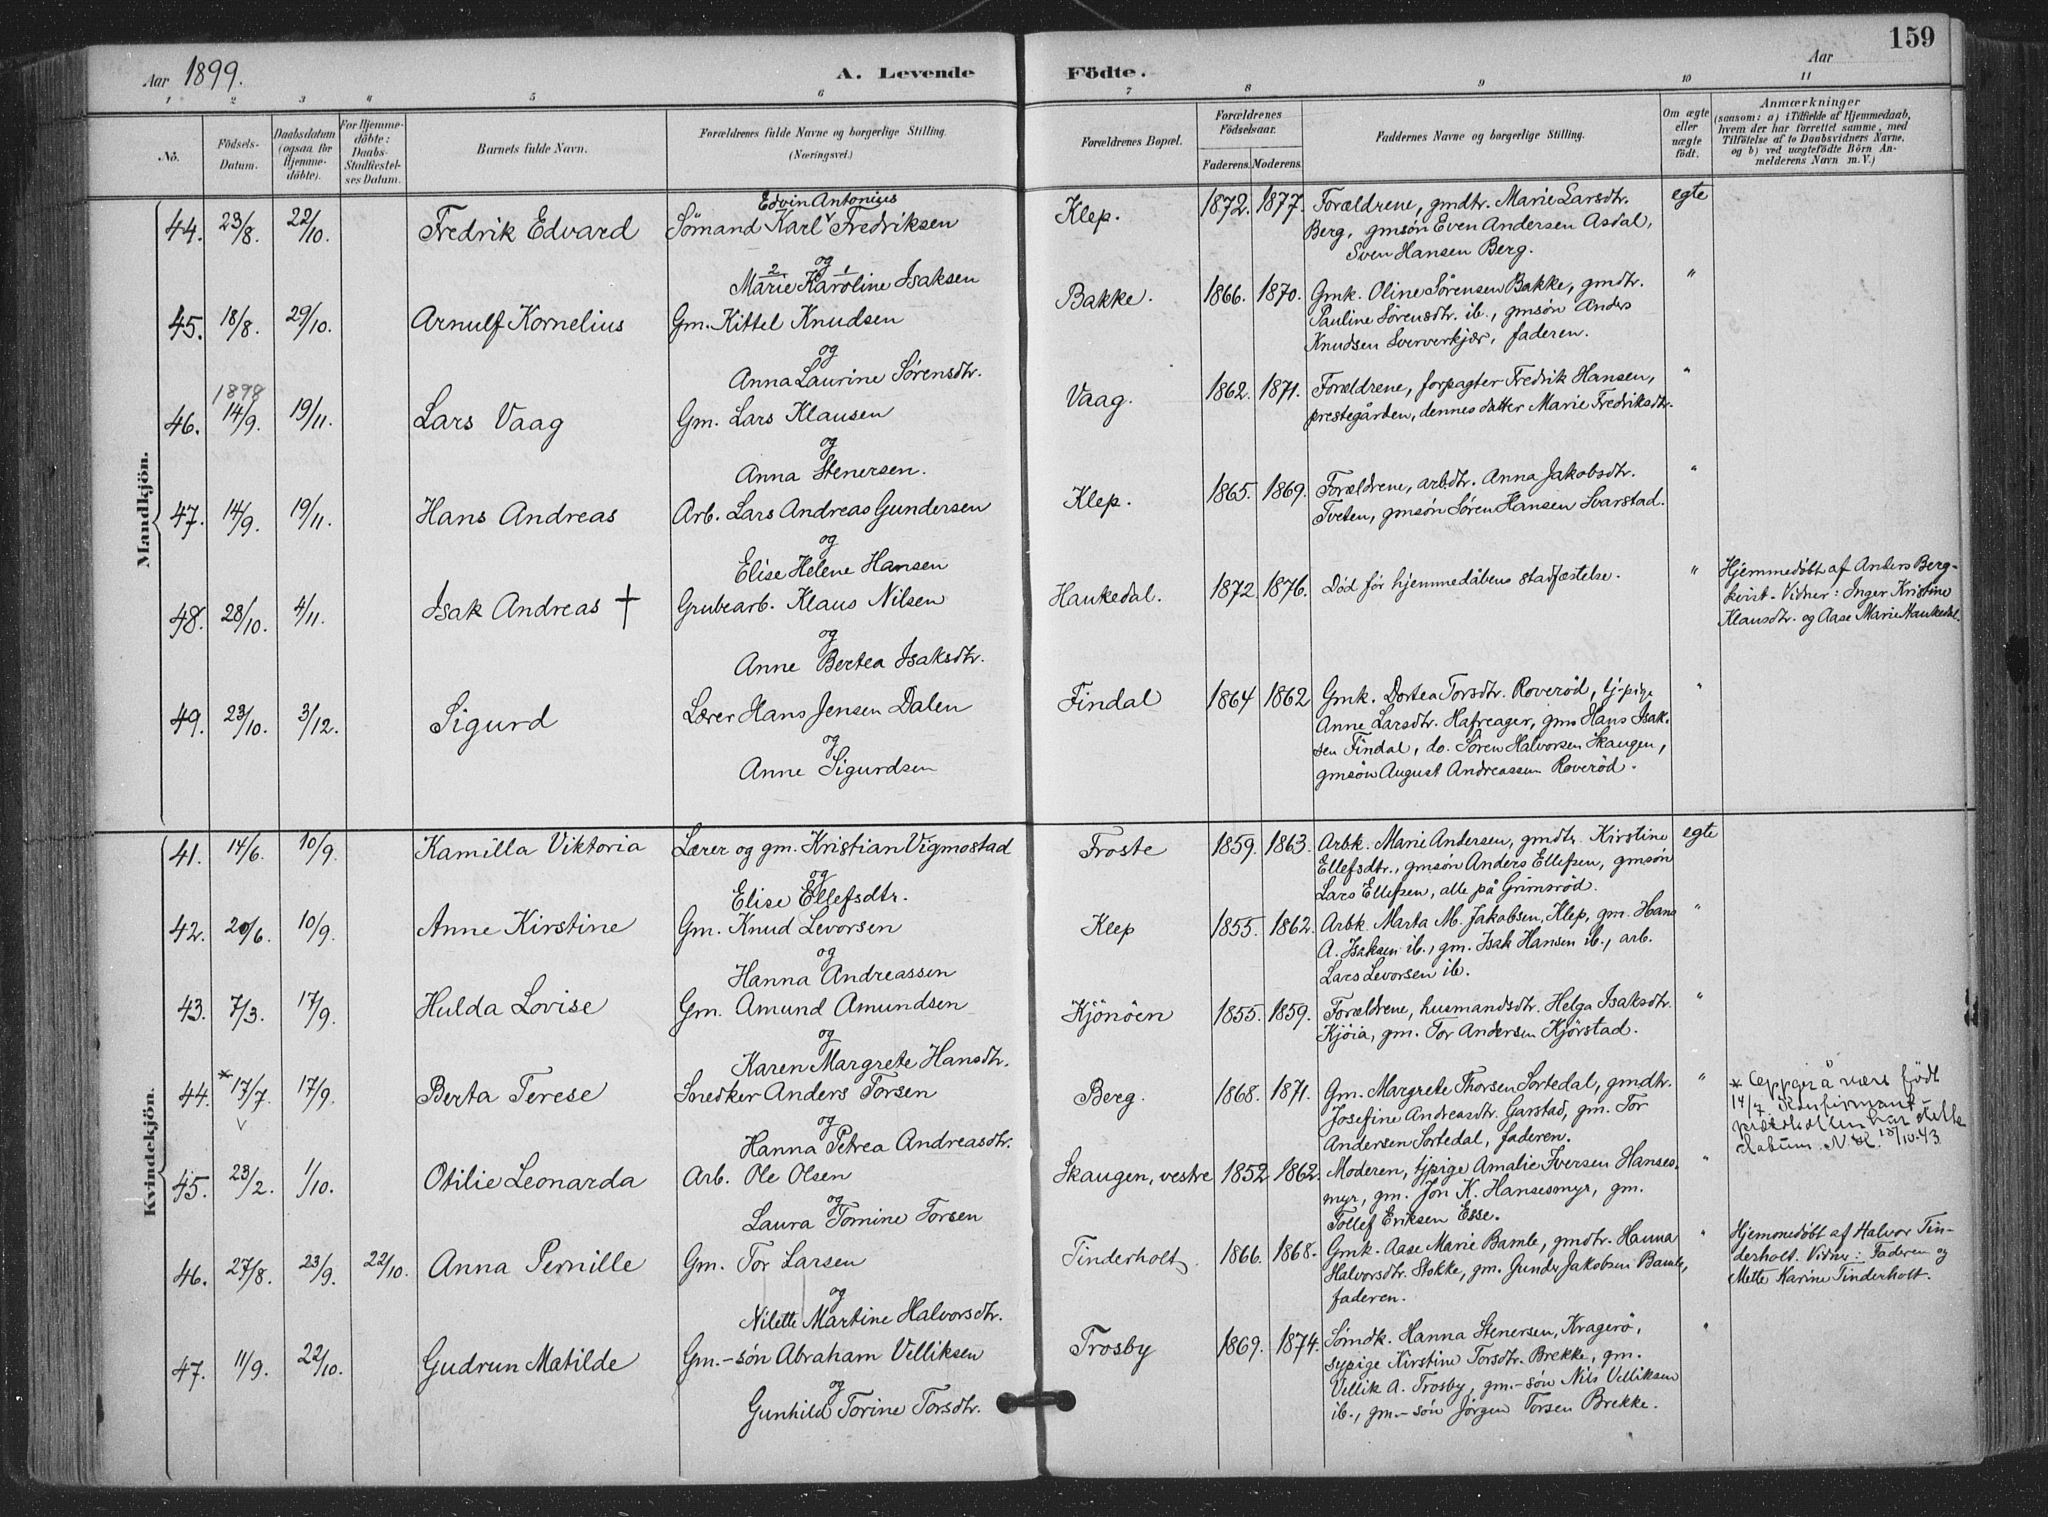 159
Aar 1899. A. Levende Födte. Aar
1 2 3 4 5 6 7 8 9 10 11
No. Födsels-Datum. Daabsdatum (ogsaa for Hjemmedöbte). For Hjemmedöbte: Daabs-Stadfæstelses Datum. Barnets fulde Navn. Forældrenes fulde Navne og borgerlige Stilling. (Næringsvei.) Forældrenes Bopæl. Forældrenes Födselsaar. Faderens. Moderens. Faddernes Navne og borgerlige Stilling. Om ægte eller uægte födt. Anmærkninger (saasom: a) i Tilfælde af Hjemmedaab, hvem der har forrettet samme, med Tilföielse af to Daabsvidners Navne, og b) ved uægtefödte Börn Anmelderens Navn m. V.)
Mandkjön.
44. 23/8. 22/10. Fredrik Edvard
Edvin Antonius
Sömand Karl Fredriksen
og
2 1
Marie Karoline Isaksen
Klep. 1872. 1877. Forældrene, gmdtr. Marie Larsdtr.
Berg, gmsön Even Andersen Asdal,
Sven Hansen Berg.
egte
45. 18/8. 29/10. Arnulf Kornelius
Gm. Kittel Knudsen
og
Anna Laurine Sörensdtr.
Bakke. 1866. 1870. Gmk. Oline Sörensen Bakke, gmdtr.
Pauline Sörensdtr. ib., gmsön Anders
Knudsen Sververkjær, faderen.
"
1898
46. 14/9. 19/11. Lars Vaag
Gm. Lars Klausen
og
Anna Stenersen.
Vaag. 1862. 1871. Forældrene, forpagter Fredrik Hansen,
prestegården, dennes datter Marie Fredriksdtr.
"
47. 14/9. 19/11. Hans Andreas
Arb. Lars Andreas Gundersen
og
Elise Helene Hansen
Klep. 1865. 1869. Forældrene, arbdtr. Anna Jakobsdtr.
Tveten, gmsön Sören Hansen Svarstad.
"
48. 28/10. 4/11. Isak Andreas †
Grubearb. Klaus Nilsen
og
Anne Bertea Isaksdtr.
Haukedal. 1872. 1876. Död för hjemmedåbens stadfæstelse.
"
Hjemmedöbt af Anders Berg-
kvist. Vidner: Inger Kristine
Klausdtr. og Aase Marie Haukedal.
49. 23/10. 3/12. Sigurd
Lærer Hans Jensen Dalen
og
Anne Sigurdsen
Findal 1864 1862 Gmk. Dortea Torsdtr. Roveröd, tj-pige
Anne Larsdtr. Hafreager, gm. Hans Isak-
sen Findal, do. Sören Halvorsen Skaugen,
gmsön August Andreassen Roveröd.
"
Kvindekjön.
41. 14/6. 10/9. Kamilla Viktoria
Lærer og gm. Kristian Vigmostad
og
Elise Ellefsdtr.
Froste 1859. 1863. Arbk. Marie Andersen, gmdtr. Kirstine
Ellefsdtr., gmsön Anders Ellefsen, gmsön
Lars Ellefsen, alle på Grimsröd.
egte
42. 20/6. 10/9. Anne Kirstine
Gm. Knud Levorsen
og
Hanna Andreassen
Klep 1855. 1862. Arbk. Marta M. Jakobsen, Klep, gm. Hans
A. Isaksen ib., gm. Isak Hansen ib., arb.
Lars Levorsen ib.
"
43. 7/3. 17/9. Hulda Lovise
Gm. Amund Amundsen
og
Karen Margrete Hansdtr.
Kjönöen 1855. 1859. Forældrene, husmandsdtr. Helga Isaksdtr.
Kjöia, gm. Tor Andersen Kjörstad.
"
44. *17/7. 17/9. Berta Terese
Snedker Anders Torsen
og
Hanna Petrea Andreasdtr.
Berg. 1868. 1871. Gm. Margrete Thorsen Sortedal, gmdtr.
Josefine Andreasdtr. Garstad, gm. Tor
Andersen Sortedal, faderen.
"
* Oppgir å være född
14/7. Konfirmant-
protokollen har dette
datum. 15/10.43
45. 23/2. 1/10. Otilie Leonarda
Arb. Ole Olsen
og
Laura Tomine Torsen
Skaugen, vestre 1852 1862. Moderen, tjpige Amalie Iversen Hanses-
myr, gm. Jon K. Hansesmyr, gm.
Tollef Eriksen Esse.
"
46. 27/8. 23/9. 22/10. Anna Pernille
Gm. Tor Larsen
og
Nilette Martine Halvorsdtr.
Tinderholt 1866. 1868. Gmk. Aase Marie Bamle, gmdtr. Hanna
Halvorsdtr. Stokke, gm. Gunder Jakobsen Bamle,
faderen.
"
Hjemmedöbt af Halvor Tin-
derholt. Vidner: Faderen og
Mette Karine Tinderholt.
47. 11/9. 22/10. Gudrun Matilde
Gm.-sön Abraham Velliksen
og
Gunhild Torine Torsdtr.
Trosby 1869. 1874. Sömdk. Hanna Stenersen, Kragerö,
sypige Kirstine Torsdtr. Brekke, gm.
Vellik A. Trosby, gm.-sön Nils Velliksen
ib., gm.-sön Jörgen Torsen Brekke.
"